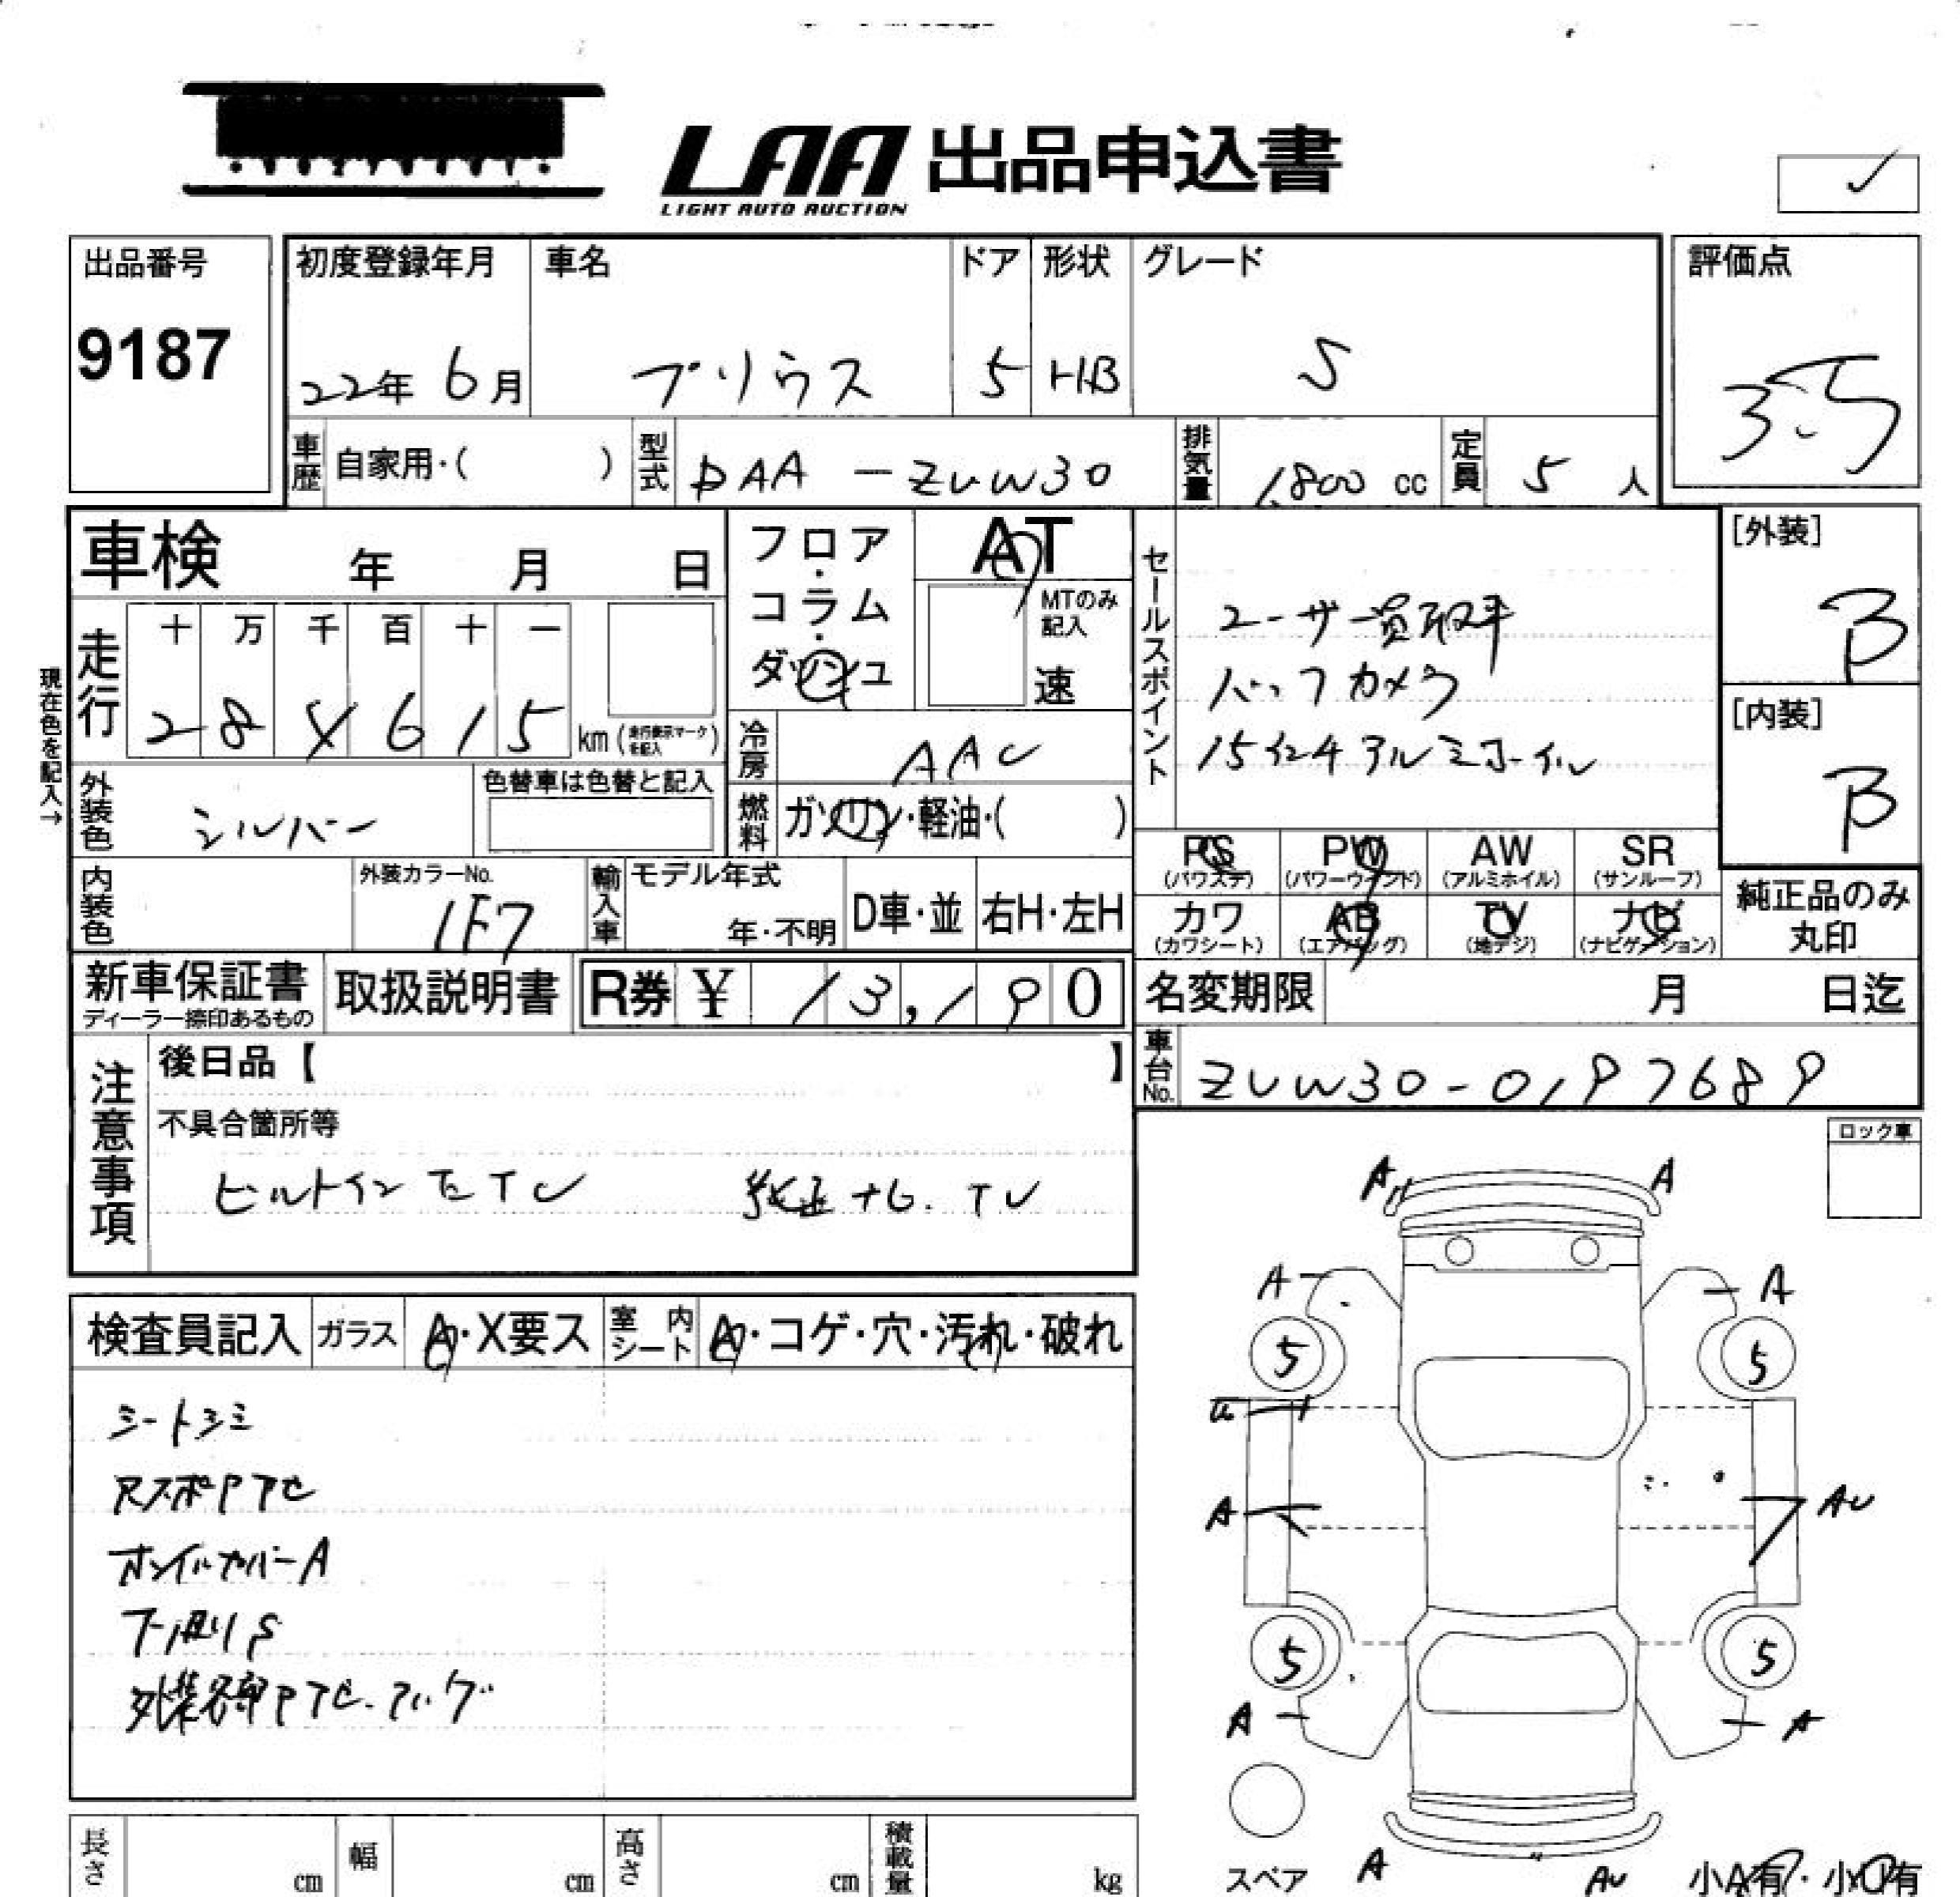 LAA 出品申込書
LIGHT AUTO AUCTION
出品番号
9187
初度登録年月
22年 6月
車名
プリウス
ドア
5
形状
HB
グレード
S
評価点
3.5
車歴 自家用・( )
型式 DAA-ZVW30
排気量 1,800 cc
定員 5 人
車検 年 月 日
フロア・コラム・ダッシュ
AT
MTのみ記入
速
セールスポイント
ユーザー買取車
バックカメラ
15インチアルミホイル
[外装]
B
[内装]
B
現在色を記入→
走行
十 万 千 百 十 一
2 8 4 6 1 5 km
冷房 AAC
外装色 シルバー
色替車は色替と記入
燃料 ガソリン・軽油・( )
PS (パワステ)
PW (パワーウインド)
AW (アルミホイル)
SR (サンルーフ)
カワ (カワシート)
AB (エアバッグ)
TV (地デジ)
ナビ (ナビゲーション)
純正品のみ丸印
内装色
外装カラーNo.
1F7
輸入車
モデル年式
年・不明
D車・並
右H・左H
新車保証書
ディーラー捺印あるもの
取扱説明書
R券 ¥ 13,190
名変期限 月 日迄
車台No. ZVW30-0197689
注意事項
後日品【 】
不具合箇所等
ビルトインETC 純正ナビ.TV
ロック車
検査員記入
ガラス A・X要ス
室内シート A・コゲ・穴・汚れ・破れ
シートシミ
ホイルカバーA
下廻りS
外装各部PTC.
A A
A A
5 5
A AU
5 5
A A
スペア
A AU
小A有・小U有
長さ cm
幅 cm
高さ cm
積載量 kg